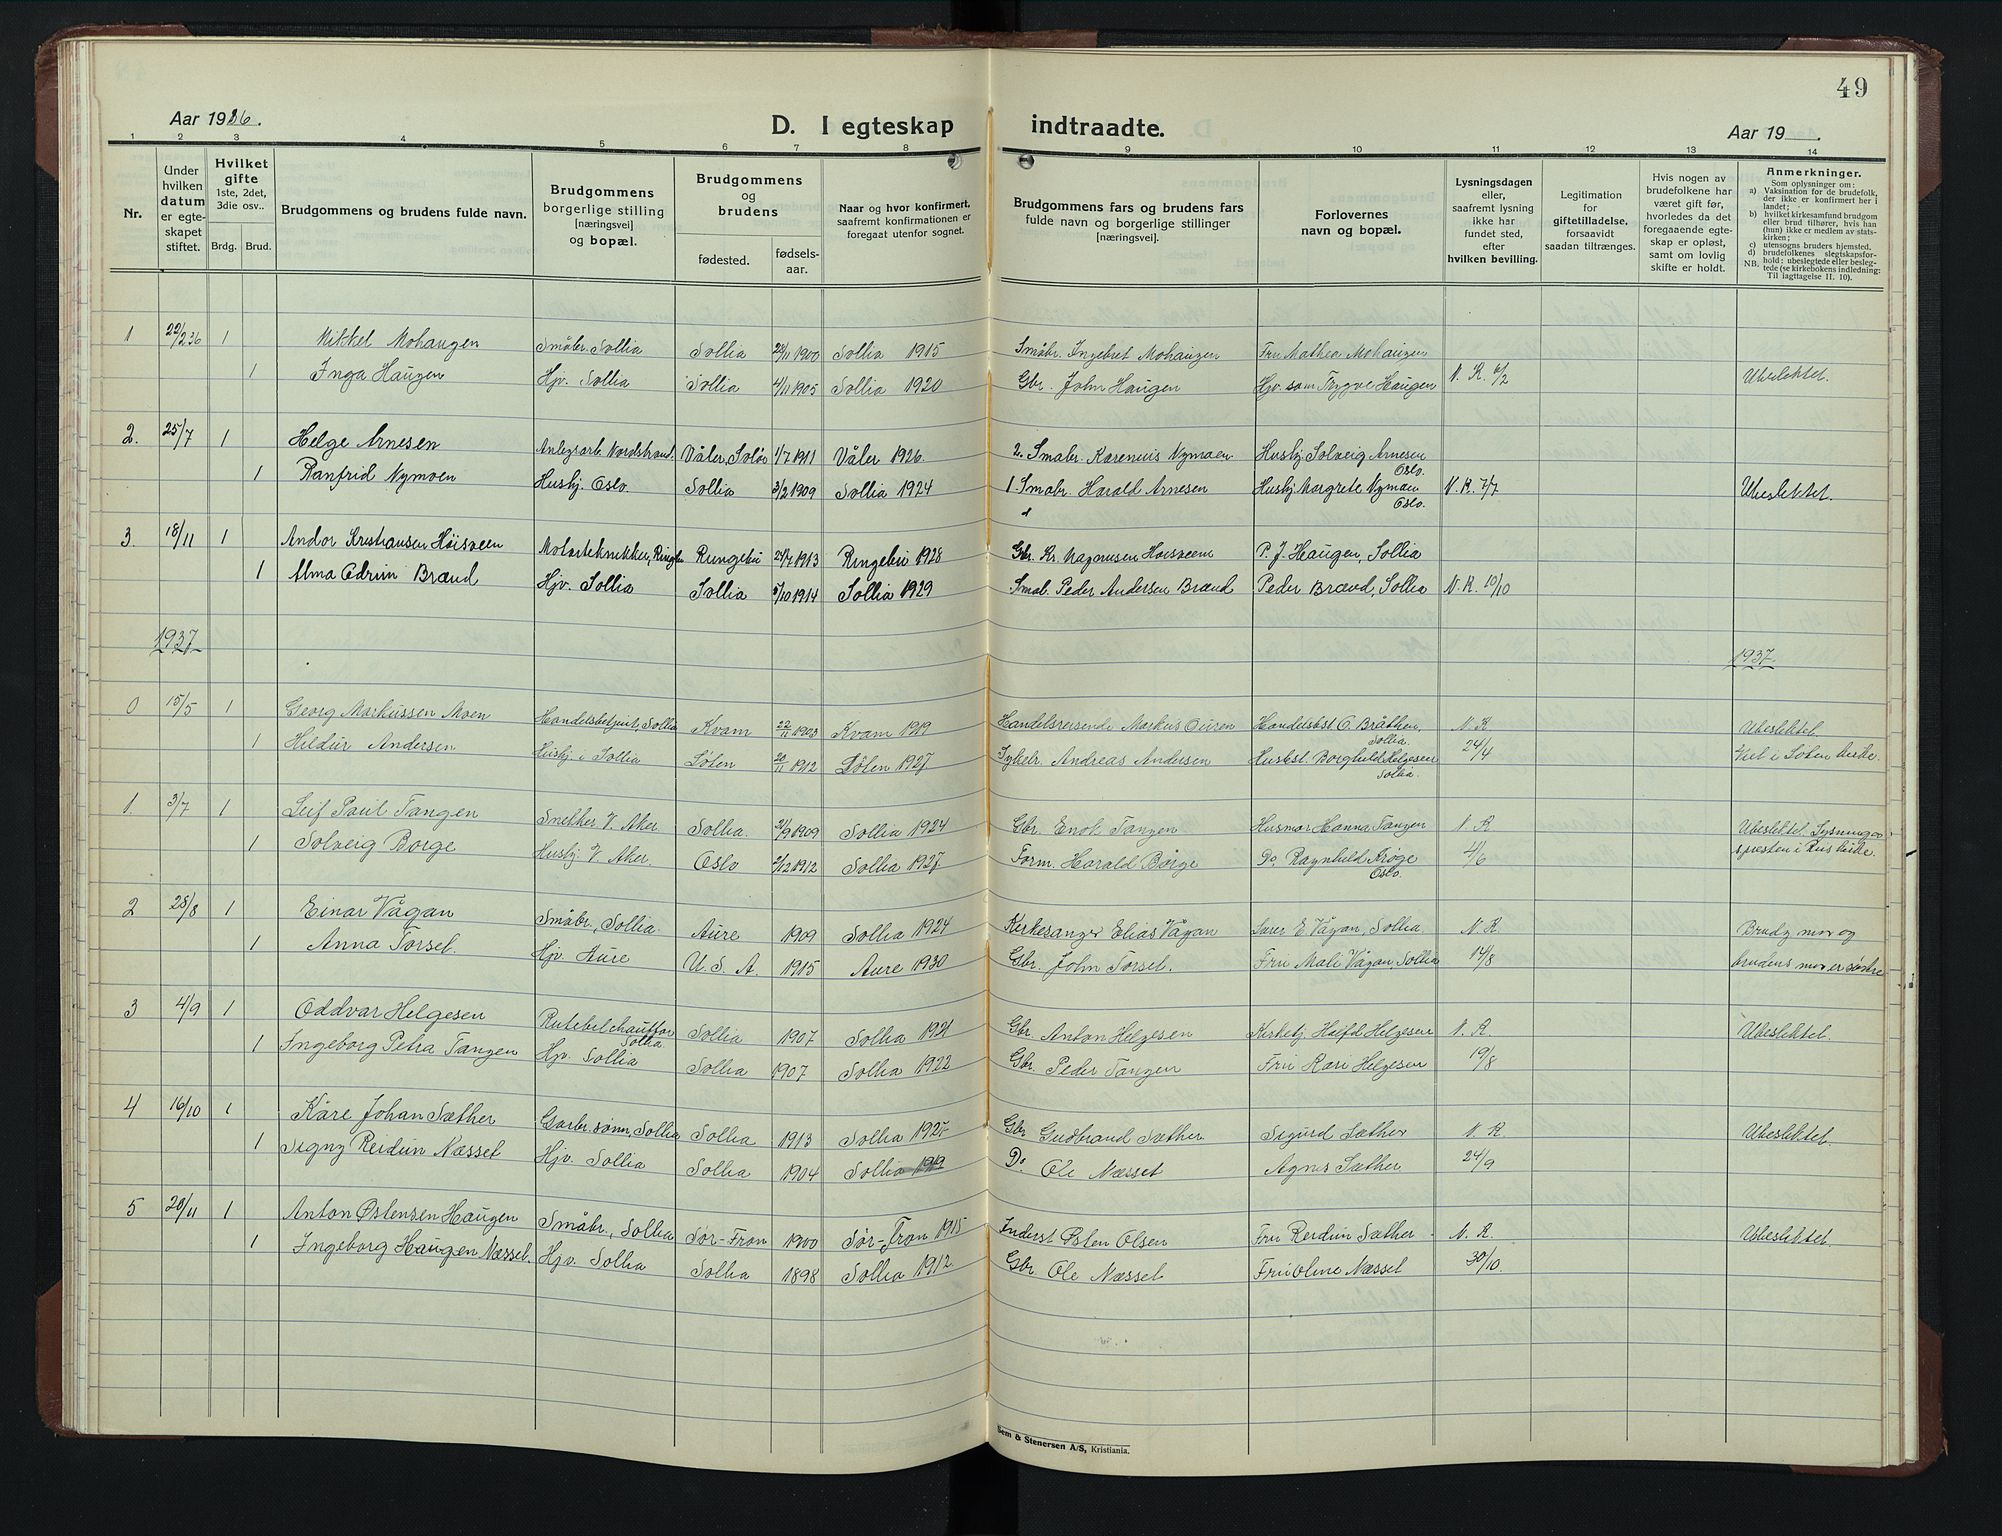 49
Aar 1936.
D. I egteskap indtraadte.
Aar 19
1 2 3 4 5 6 7 8 9 10 11 12 13 14
Nr.
Under hvilken datum er egteskapet stiftet.
Hvilket gifte 1ste, 2det, 3die osv..
Brdg. Brud.
Brudgommens og brudens fulde navn.
Brudgommens borgerlige stilling [næringsvei] og bopæl.
Brudgommens og brudens
fødested. fødselsaar.
Naar og hvor konfirmert, saafremt konfirmationen er foregaat utenfor sognet.
Brudgommens fars og brudens fars fulde navn og borgerlige stillinger [næringsvei].
Forlovernes navn og bopæl.
Lysningsdagen eller, saafremt lysning ikke har fundet sted, efter hvilken bevilling.
Legitimation for giftetilladelse, forsaavidt saadan tiltrænges.
Hvis nogen av brudefolkene har været gift før, hvorledes da det foregaaende egteskap er opløst, samt om lovlig skifte er holdt.
Anmerkninger.
Som oplysninger om:
a) Vaksination for de brudefolk, der ikke er konfirmert her i landet;
b) hvilket kirkesamfund brudgom eller brud tilhører, hvis han (hun) ikke er medlem av statskirken;
c) utensogns bruders hjemsted.
d) brudefolkenes slegtskapsforhold: ubeslegtede eller beslegtede (se kirkebokens indledning: Til iagttagelse II. 10).
NB.
1 22/2 36 1 Mikkel Mohaugen Småbr. Sollia Sollia 1900 Sollia 1915 Småbr. Ingebret Mohaugen Fru Mathea Mohaugen
1 Inga Haugen Hjv. Sollia Sollia 4/11 1905 Sollia 1920 Gbr. John Haugen Hjv. som Trygve Haugen N. K. 6/2 Ubeslektet.
2. 25/7 1 Helge Arnesen Anlegsarb. Nordstrand. Våler, Solør 1/7 1911 Våler 1926. 2. Småbr. Karenius Nymoen Husbj. Solveig Arnesen Oslo.
1 Ranfrid Nymoen Husbj. Oslo Sollia 3/2 1909 Sollia 1924 1 Småbr. Harald Arnesen Husbj. Margrete Nymoen Oslo. N. K. 7/7 Ubeslektet.
3. 18/11 1 Andor Kristiansen Høisveen Motortekniker, Ringebu Ringebu 1913 Ringebu 1928 Gbr. Kr. Magnussen Høisveen P. J. Haugen, Sollia
1 Alma Odrun Brænd Hjv. Sollia Sollia 5/10 1914 Sollia 1929 Småb. Peder Andersen Brænd Peder Brænd, Sollia N. K. 10/10
1937 1937.
0 15/5 1 Georg Markussen Moen Handelsbetjent, Sollia Kvam 22/11 1903 Kvam 1919 Handelsreisende Markus Ouren Handelsbst. O. Bråthen Sollia. N. K. Ubeslektet.
1 Hildur Andersen Husbj. i Sollia Løten 20/11 1912 Løten 1927. Andreas Andersen Husbst. Borghild Helgesen Sollia. 24/4 Viet i Løten kirke.
1. 3/7 1 Leif Paul Tangen Snekker V. Aker Sollia. 21/9 1909 Sollia 1924 Gbr. Enok Tangen Husmor Hanna Tangen N. K. Ubeslektet. Lysning av
1 Solveig Borge Husbj. V. Aker Oslo 2/12 1912 Sollia 1927. Form. Harald Borge Do Ragnhild Krøge Oslo. 4/6 presten i Ris kirke.
2 28/8 1 Einar Vågan Småbr., Sollia. Aure 1909 Sollia 1924 Kirkesanger Elias Vågan Lærer E. Vågan, Sollia N. K. Brudg. mor og
1 Anna Torset. Hjv. Aure U. S. A. 1915 Aure 1930 Gbr. John Torset. Fru Mali Vågan, Sollia 14/8 brudens mor er søstre
3 4/9 1 Oddvar Helgesen Rutebilchauffør Sollia Sollia 1907 Sollia 1921 Gbr. Anton Helgesen Kirketj. Helgesen N. K. Ubeslektet.
1 Ingeborg Petra Tangen Hjv. Sollia Sollia 1907 Sollia 1922 Gbr. Peder Tangen Fru Kari Helgesen 19/8
4 16/10 1 Kåre Johan Sæther Garbr. sønn, Sollia Sollia 1913 Sollia 1927. Gbr. Gudbrand Sæther. Sigurd Sæther N. K. Ubeslektet.
1 Signy Reidun Næsset Hjv. Sollia Sollia 1904 Sollia 1919 Do Ole Næsset Agnes Sæther 24/9
5 20/11 1 Anton Østensen Haugen Småbr., Sollia Sør-Fron 1900 Sør-Fron 1915 Inderst Østen Olsen Fru Reidun Sæther N. K. Ubeslektet.
1 Ingeborg Haugen Næsset. Hjv. Sollia Sollia 1898 Sollia 1912. Gbr. Ole Næsset Fru Oline Næsset 30/10
Sem & Stenersen A/S, Kristiania.